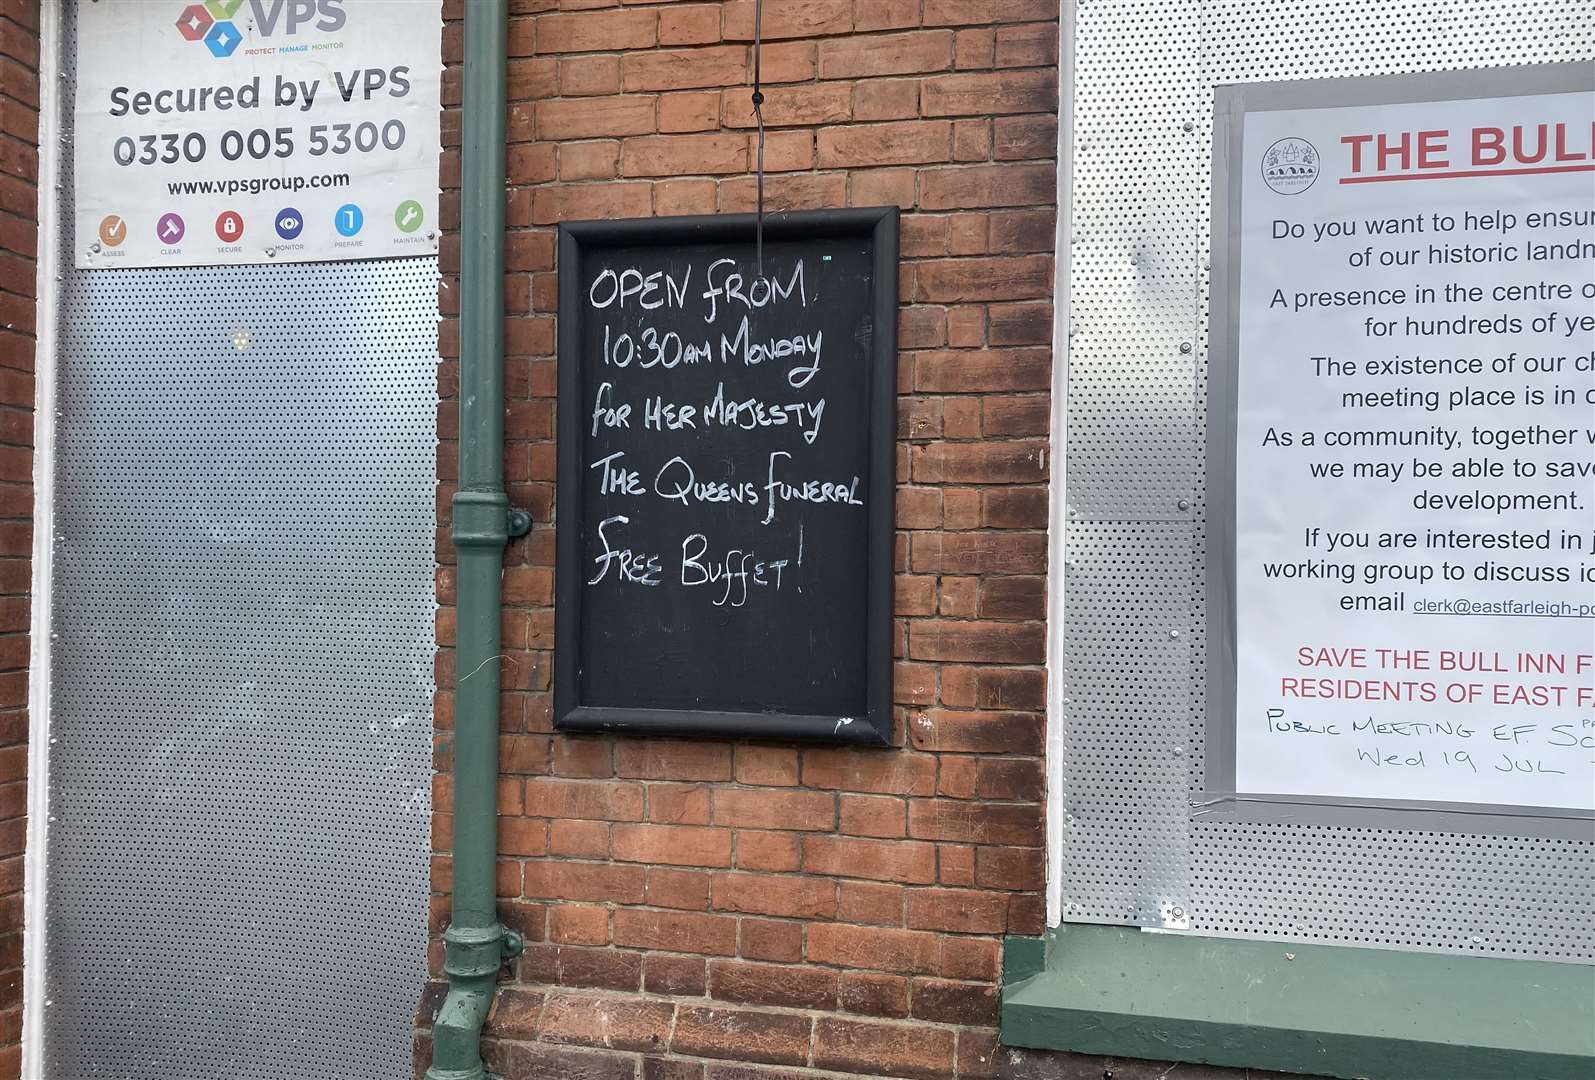 VPS
PROTECT MANAGE MONITOR
Secured by VPS
0330 005 5300
www.vpsgroup.com
ASSESS CLEAR SECURE MONITOR PREPARE MAINTAIN
OPEN FROM
10:30AM MONDAY
FOR HER MAJESTY
THE QUEENS FUNERAL
FREE BUFFET!
THE BULL
Do you want to help ensur
of our historic landm
A presence in the centre o
for hundreds of ye
The existence of our ch
meeting place is in
As a community, together w
we may be able to save
development.
If you are interested in j
working group to discuss id
email clerk@eastfarleigh-pc
SAVE THE BULL INN F
RESIDENTS OF EAST F
PUBLIC MEETING EF. Sc
Wed 19 JUL